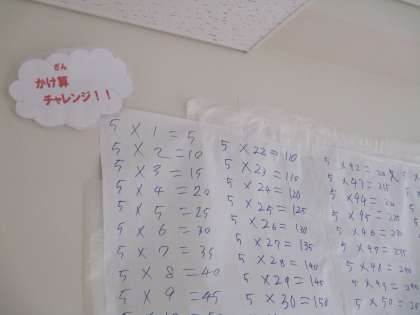 ざん
かけ算
チャレンジ！！
5 × 1 = 5
5 × 2 = 10
5 × 3 = 15
5 × 4 = 20
5 × 5 = 25
5 × 6 = 30
5 × 7 = 35
5 × 8 = 40
5 × 9 = 45
5 × 22 = 110
5 × 23 = 115
5 × 24 = 120
5 × 25 = 125
5 × 26 = 130
5 × 27 = 135
5 × 28 = 140
5 × 29 = 145
5 × 30 = 150
5 × 44 =
5 × 45 =
5 × 46 =
5 × 48 =
5 × 50 =